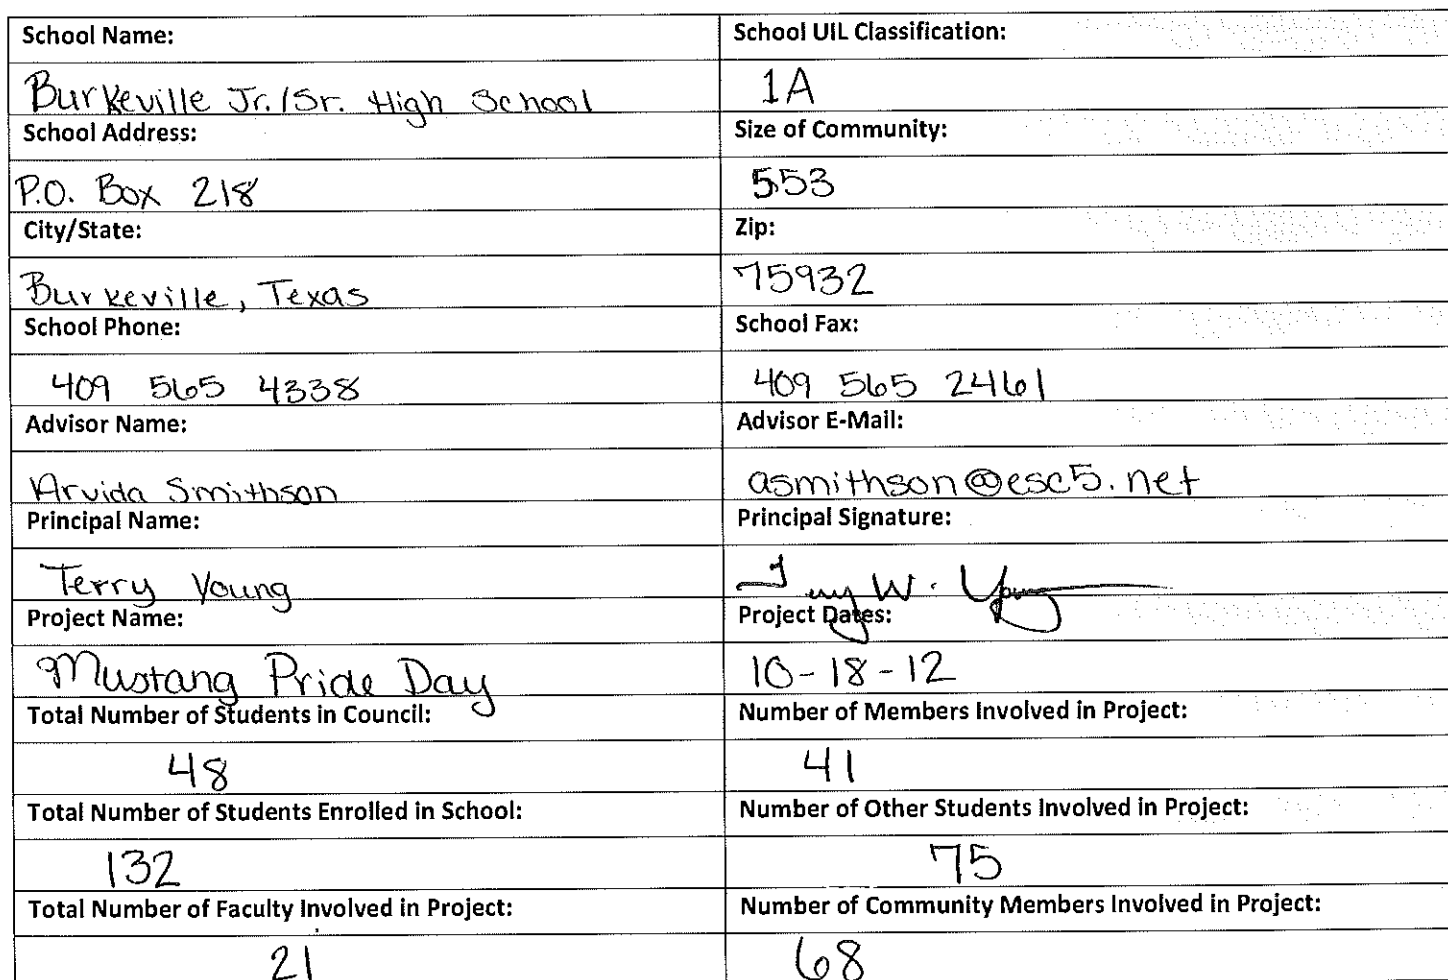 School Name: School UIL Classification:
Burkeville Jr./Sr. High School 1A
School Address: Size of Community:
P.O. Box 218 553
City/State: Zip:
Burkeville, Texas 75932
School Phone: School Fax:
409 565 4338 409 565 2461
Advisor Name: Advisor E-Mail:
Arvida Smithson asmithson@esc5.net
Principal Name: Principal Signature:
Terry Young Terry W. Young
Project Name: Project Dates:
Mustang Pride Day 10-18-12
Total Number of Students in Council: Number of Members Involved in Project:
48 41
Total Number of Students Enrolled in School: Number of Other Students Involved in Project:
132 75
Total Number of Faculty Involved in Project: Number of Community Members Involved in Project:
21 68